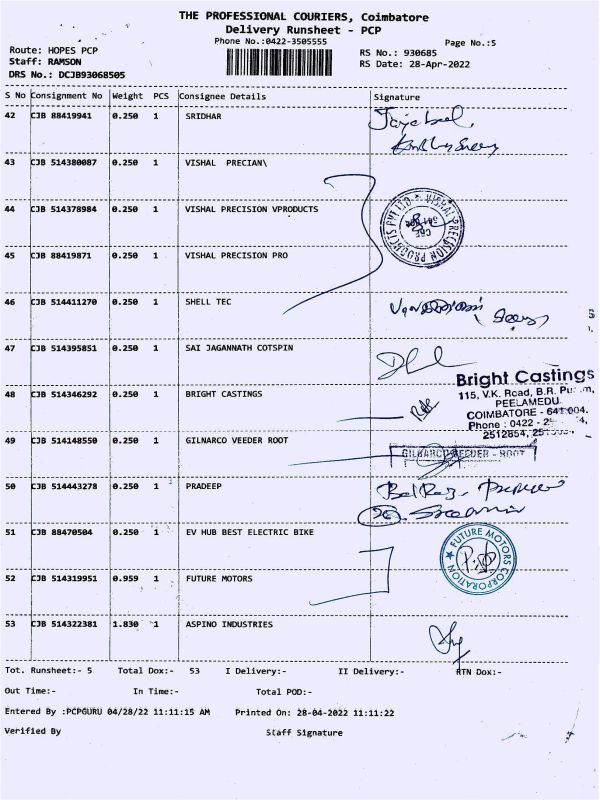 THE PROFESSIONAL COURIERS, Coimbatore
Delivery Runsheet - PCP
Phone No.:0422-3505555
Page No.:5
Route: HOPES PCP
RS No.: 930685
Staff: RAMSON
RS Date: 28-Apr-2022
DRS No.: DCJB93068505
S No Consignment No Weight PCS Consignee Details Signature
42 CJB 88419941 0.250 1 SRIDHAR
43 CJB 514380087 0.250 1 VISHAL PRECIAN\
44 CJB 514378984 0.250 1 VISHAL PRECISION VPRODUCTS
VISHAL PRECISION PRODUCTS PVT LTD
45 CJB 88419871 0.250 1 VISHAL PRECISION PRO
46 CJB 514411270 0.250 1 SHELL TEC
47 CJB 514395851 0.250 1 SAI JAGANNATH COTSPIN
48 CJB 514346292 0.250 1 BRIGHT CASTINGS
Bright Castings
115, V.K. Road, B.R.
PEELAMEDU
COIMBATORE - 641 004.
Phone : 0422 -
2512854,
49 CJB 514148550 0.250 1 GILNARCO VEEDER ROOT
GILBARCO VEEDER - ROOT
50 CJB 514443278 0.250 1 PRADEEP
51 CJB 88470504 0.250 1 EV HUB BEST ELECTRIC BIKE
FUTURE MOTORS CORPORATION
52 CJB 514319951 0.959 1 FUTURE MOTORS
53 CJB 514322381 1.830 1 ASPINO INDUSTRIES
Tot. Runsheet:- 5 Total Dox:- 53 I Delivery:- II Delivery:- RTN Dox:-
Out Time:- In Time:- Total POD:-
Entered By :PCPGURU 04/28/22 11:11:15 AM Printed On: 28-04-2022 11:11:22
Verified By Staff Signature